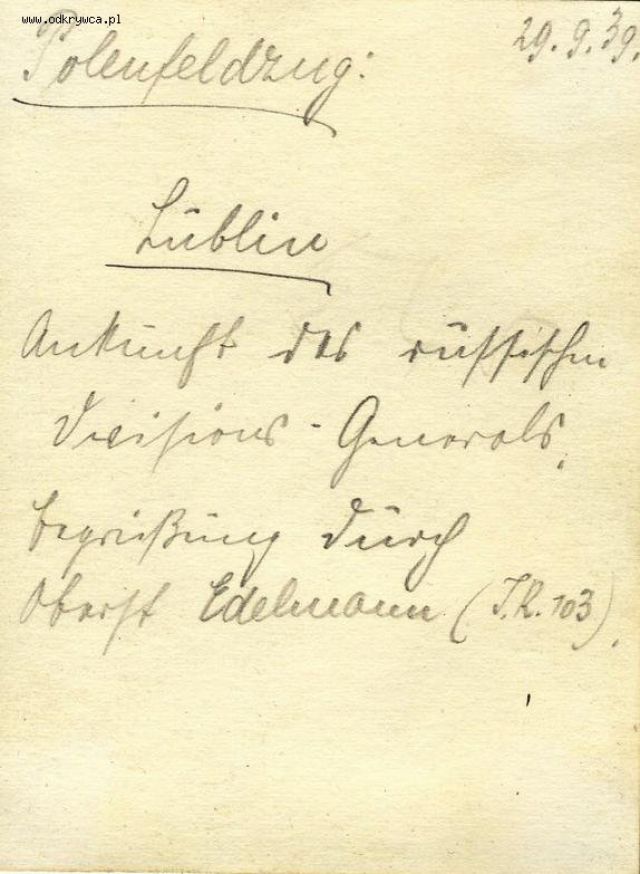 www.odkrywca.pl
Polenfeldzug: 29.9.39.
Lublin
Ankunft des russischen
Divisions-Generals,
begrüßung durch
Oberst Edelmann (J.R.103).